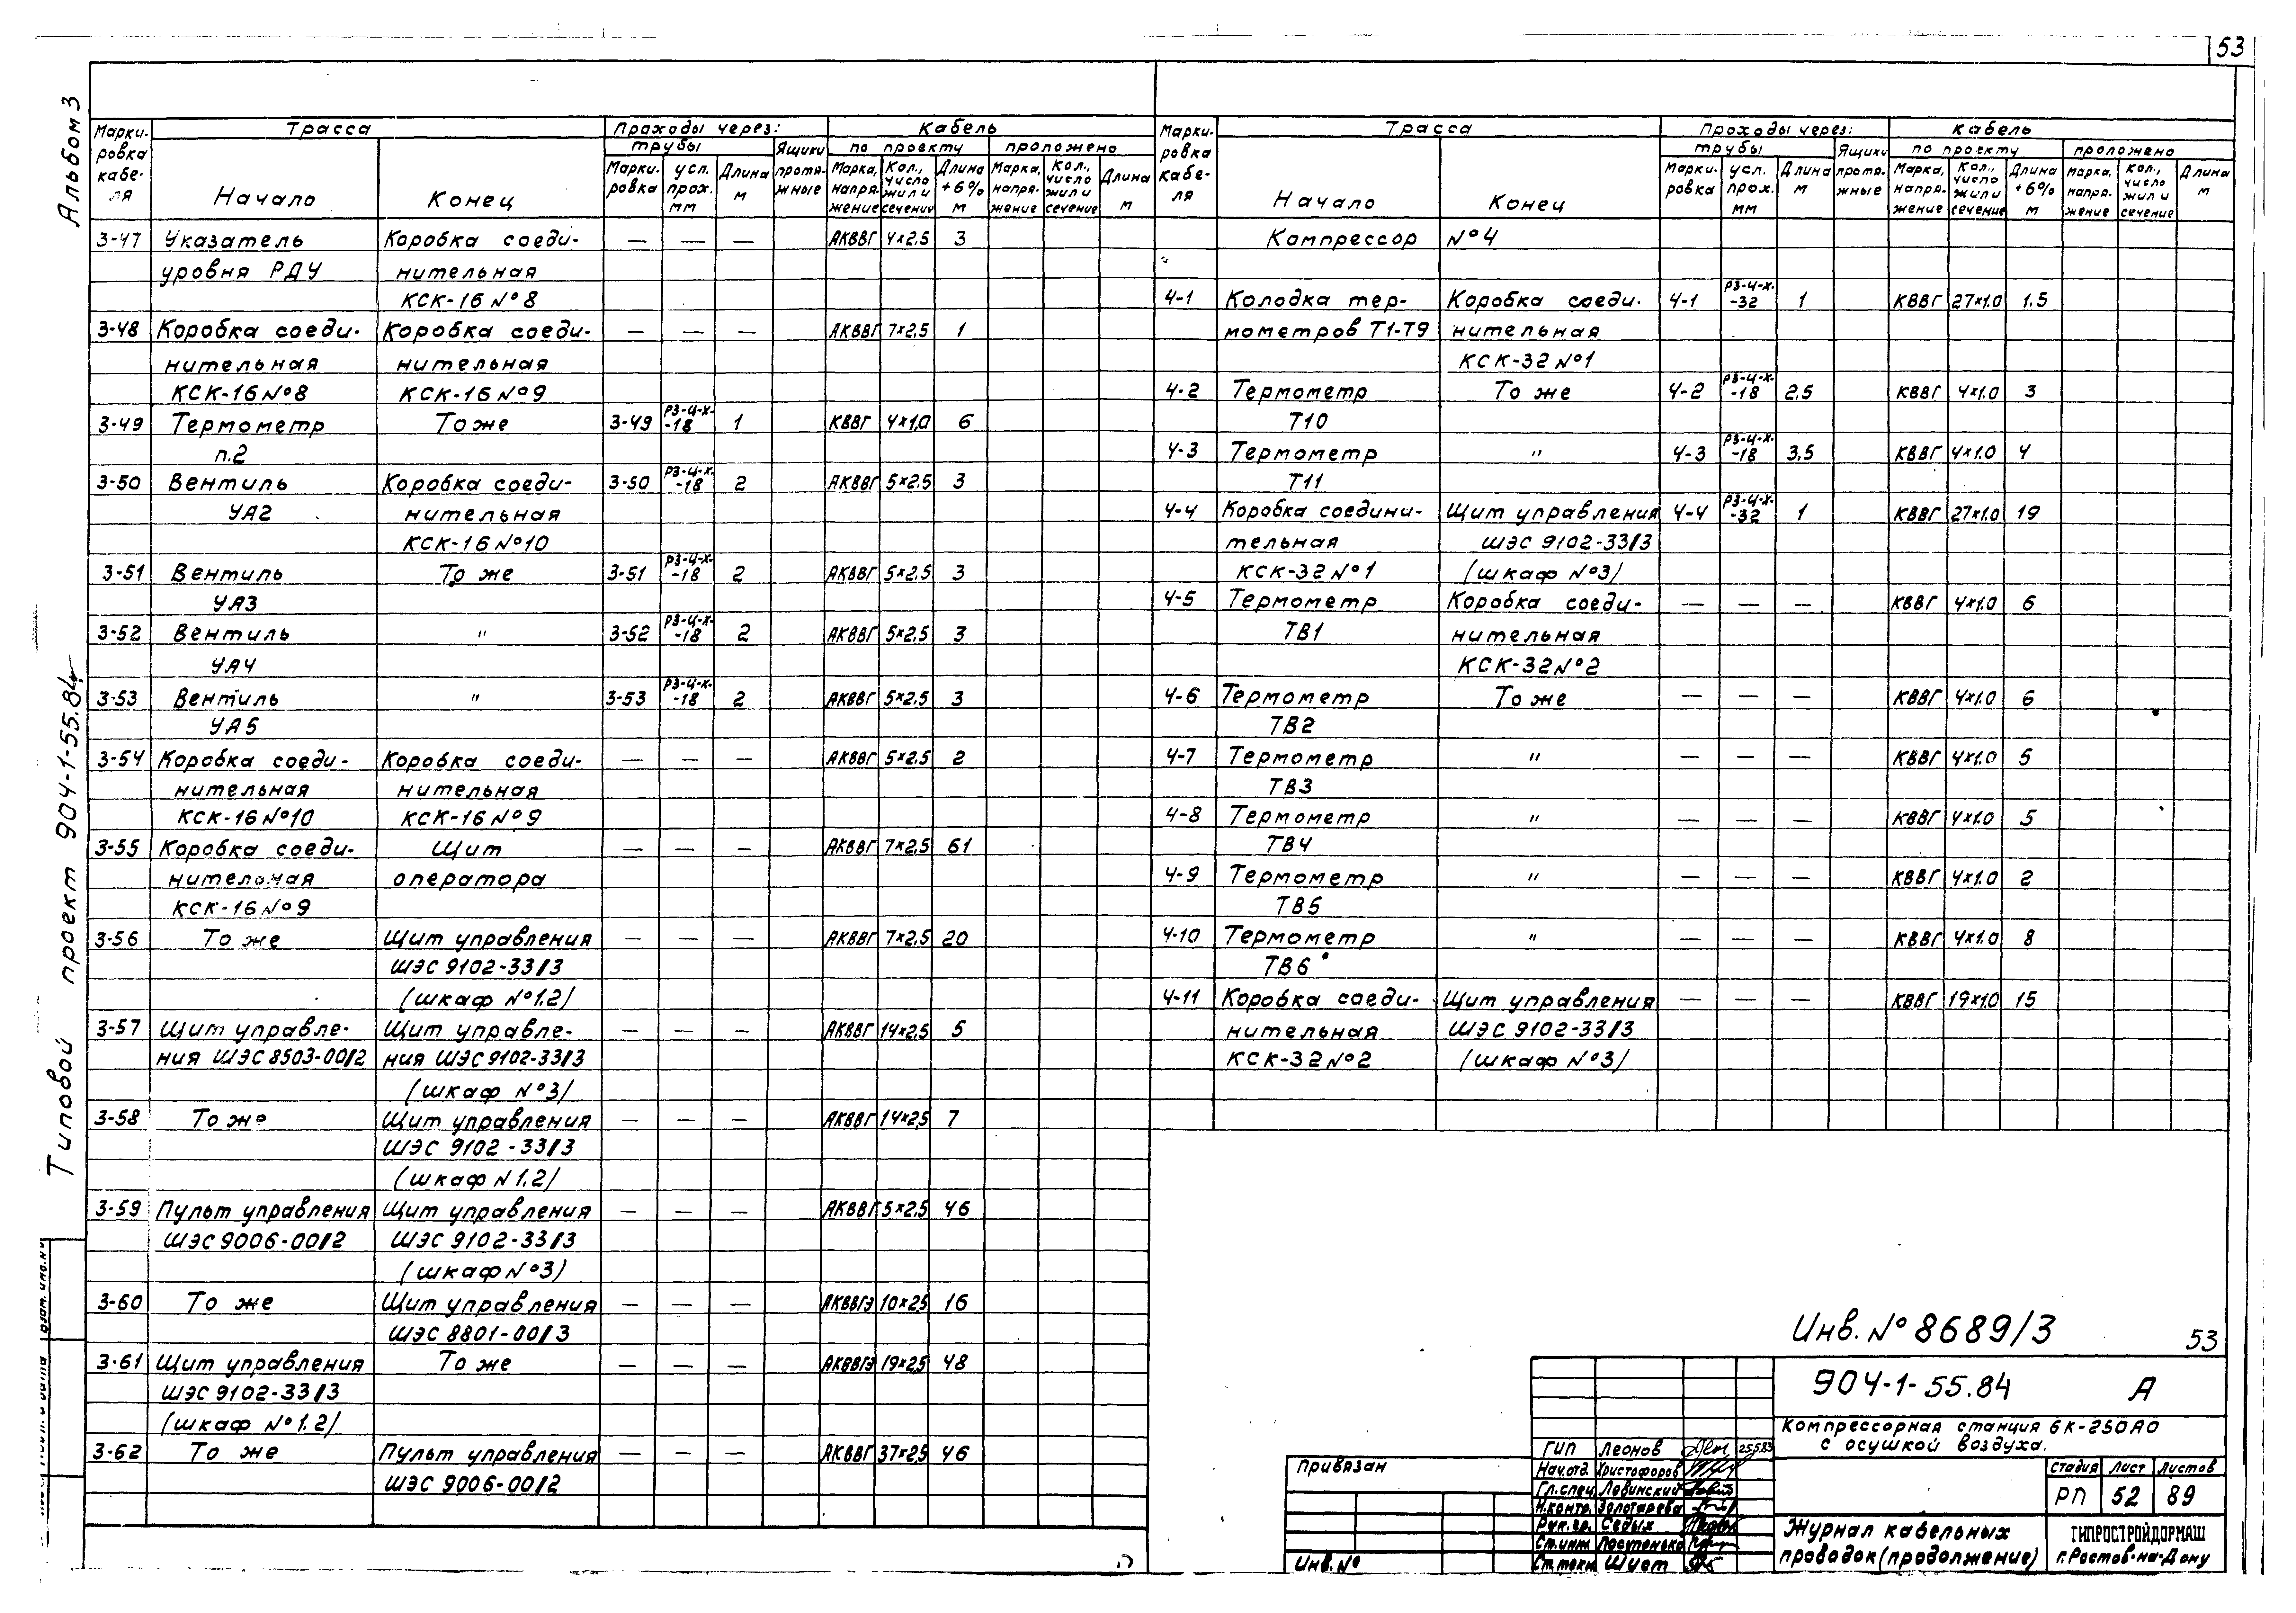 53
Альбом 3
Типовой проект 904-1-55.84
Марки-ровка кабе-ля | Трасса | Проходы через: | Кабель
трубы | Ящики протя-жные | по проекту | проложено
Начало | Конец | Марки-ровка | усл. прох. мм | Длина м | Марка, напря-жение | Кол., число жил и сечение | Длина +6% м | Марка, напря-жение | Кол., число жил и сечение | Длина м
3-47 Указатель Коробка соеди- — — — АКВВГ 4×2,5 3
уровня РДУ нительная
КСК-16 №8
3-48 Коробка соеди- Коробка соеди- — — — АКВВГ 7×2,5 1
нительная нительная
КСК-16 №8 КСК-16 №9
3-49 Термометр То же 3-49 РЗ-Ц-Х-18 1 КВВГ 4×1,0 6
п.2
3-50 Вентиль Коробка соеди- 3-50 РЗ-Ц-Х-18 2 АКВВГ 5×2,5 3
УА2 нительная
КСК-16 №10
3-51 Вентиль То же 3-51 РЗ-Ц-Х-18 2 АКВВГ 5×2,5 3
УА3
3-52 Вентиль " 3-52 РЗ-Ц-Х-18 2 АКВВГ 5×2,5 3
УА4
3-53 Вентиль " 3-53 РЗ-Ц-Х-18 2 АКВВГ 5×2,5 3
УА5
3-54 Коробка соеди- Коробка соеди- — — — АКВВГ 5×2,5 2
нительная нительная
КСК-16 №10 КСК-16 №9
3-55 Коробка соеди- Щит — — — АКВВГ 7×2,5 61
нительная оператора
КСК-16 №9
3-56 То же Щит управления — — — АКВВГ 7×2,5 20
ШЭС 9102-33/3
(шкаф №1.2)
3-57 Щит управле- Щит управле- — — — АКВВГ 14×2,5 5
ния ШЭС 8503-00/2 ния ШЭС 9102-33/3
(шкаф №3)
3-58 То же Щит управления — — — АКВВГ 14×2,5 7
ШЭС 9102-33/3
(шкаф N1.2)
3-59 Пульт управления Щит управления — — — АКВВГ 5×2,5 46
ШЭС 9006-00/2 ШЭС 9102-33/3
(шкаф №3)
3-60 То же Щит управления — — — АКВВГЭ 10×2,5 16
ШЭС 8801-00/3
3-61 Щит управления То же — — — АКВВГЭ 19×2,5 48
ШЭС 9102-33/3
(шкаф №1.2)
3-62 То же Пульт управления — — — АКВВГ 37×2,5 46
ШЭС 9006-00/2
Марки-ровка кабе-ля | Трасса | Проходы через: | Кабель
трубы | Ящики протя-жные | по проекту | проложено
Начало | Конец | Марки-ровка | усл. прох. мм | Длина м | Марка, напря-жение | Кол., число жил и сечение | Длина +6% м | Марка, напря-жение | Кол., число жил и сечение | Длина м
Компрессор №4
4-1 Колодка тер- Коробка соеди- 4-1 РЗ-Ц-Х-32 1 КВВГ 27×1.0 1.5
мометров Т1-Т9 нительная
КСК-32 №1
4-2 Термометр То же 4-2 РЗ-Ц-Х-18 2,5 КВВГ 4×1.0 3
Т10
4-3 Термометр " 4-3 РЗ-Ц-Х-18 3,5 КВВГ 4×1.0 4
Т11
4-4 Коробка соедини- Щит управления 4-4 РЗ-Ц-Х-32 1 КВВГ 27×1.0 19
тельная ШЭС 9102-33/3
КСК-32 №1 (шкаф №3)
4-5 Термометр Коробка соеди- — — — КВВГ 4×1.0 6
ТВ1 нительная
КСК-32 №2
4-6 Термометр То же — — — КВВГ 4×1.0 6
ТВ2
4-7 Термометр " — — — КВВГ 4×1.0 5
ТВ3
4-8 Термометр " — — — КВВГ 4×1.0 5
ТВ4
4-9 Термометр " — — — КВВГ 4×1.0 2
ТВ5
4-10 Термометр " — — — КВВГ 4×1.0 8
ТВ6
4-11 Коробка соеди- Щит управления — — — КВВГ 19×1.0 15
нительная ШЭС 9102-33/3
КСК-32 №2 (шкаф №3)
Инв. № 8689/3 53
904-1-55.84 А
Компрессорная станция 6К-250АО
с осушкой воздуха.
Гип Леонов 25.5.83
Нач.отд. Христофоров
Гл.спец Левинский
Н.контр. Золотарева
Рук.гр. Седых
Ст.инж.
Ст.техн. Шиот
Привязан
Инв.№
стадия лист листов
РП 52 89
Журнал кабельных
проводок (продолжение)
ГИПРОСТРОЙДОРМАШ
г.Ростов-на-Дону
взам. инв.№